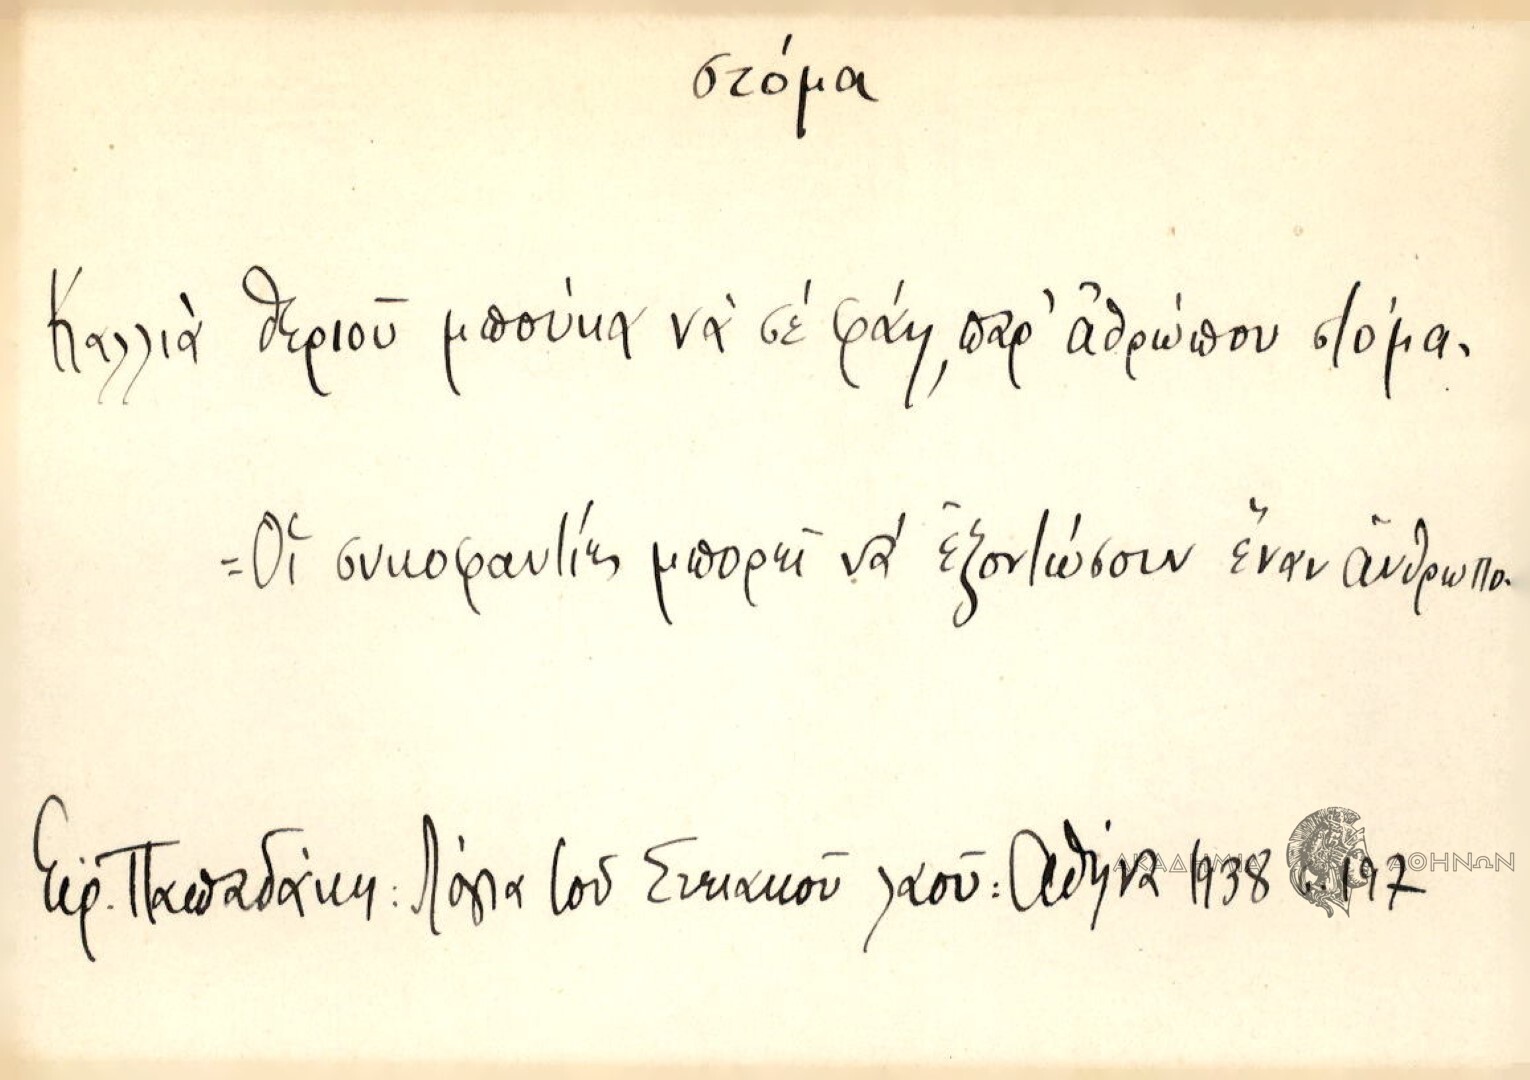 στόμα
Καλλιὰ θεριοῦ μπούκα νὰ σέ φάῃ, παρ' ἀθρώπου στόμα.
=Οἱ συκοφαντίες μπορεῖ νά ἐξοντώσουν ἕναν ἄνθρωπο.
Εἰρ. Παπαδάκη: Λόγια τοῦ Στειακοῦ λαοῦ: Ἀθήνα 1938 σ. 197
ΑΚΑΔΗΜΙΑ ΑΘΗΝΩΝ